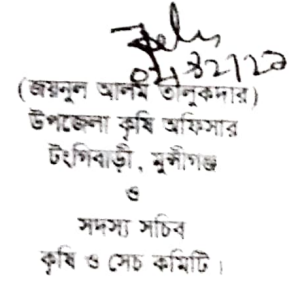 (জয়নুল আলম তালুকদার)
উপজেলা কৃষি অফিসার
টংগিবাড়ী, মুন্সীগঞ্জ
ও
সদস্য সচিব
কৃষি ও সেচ কমিটি।